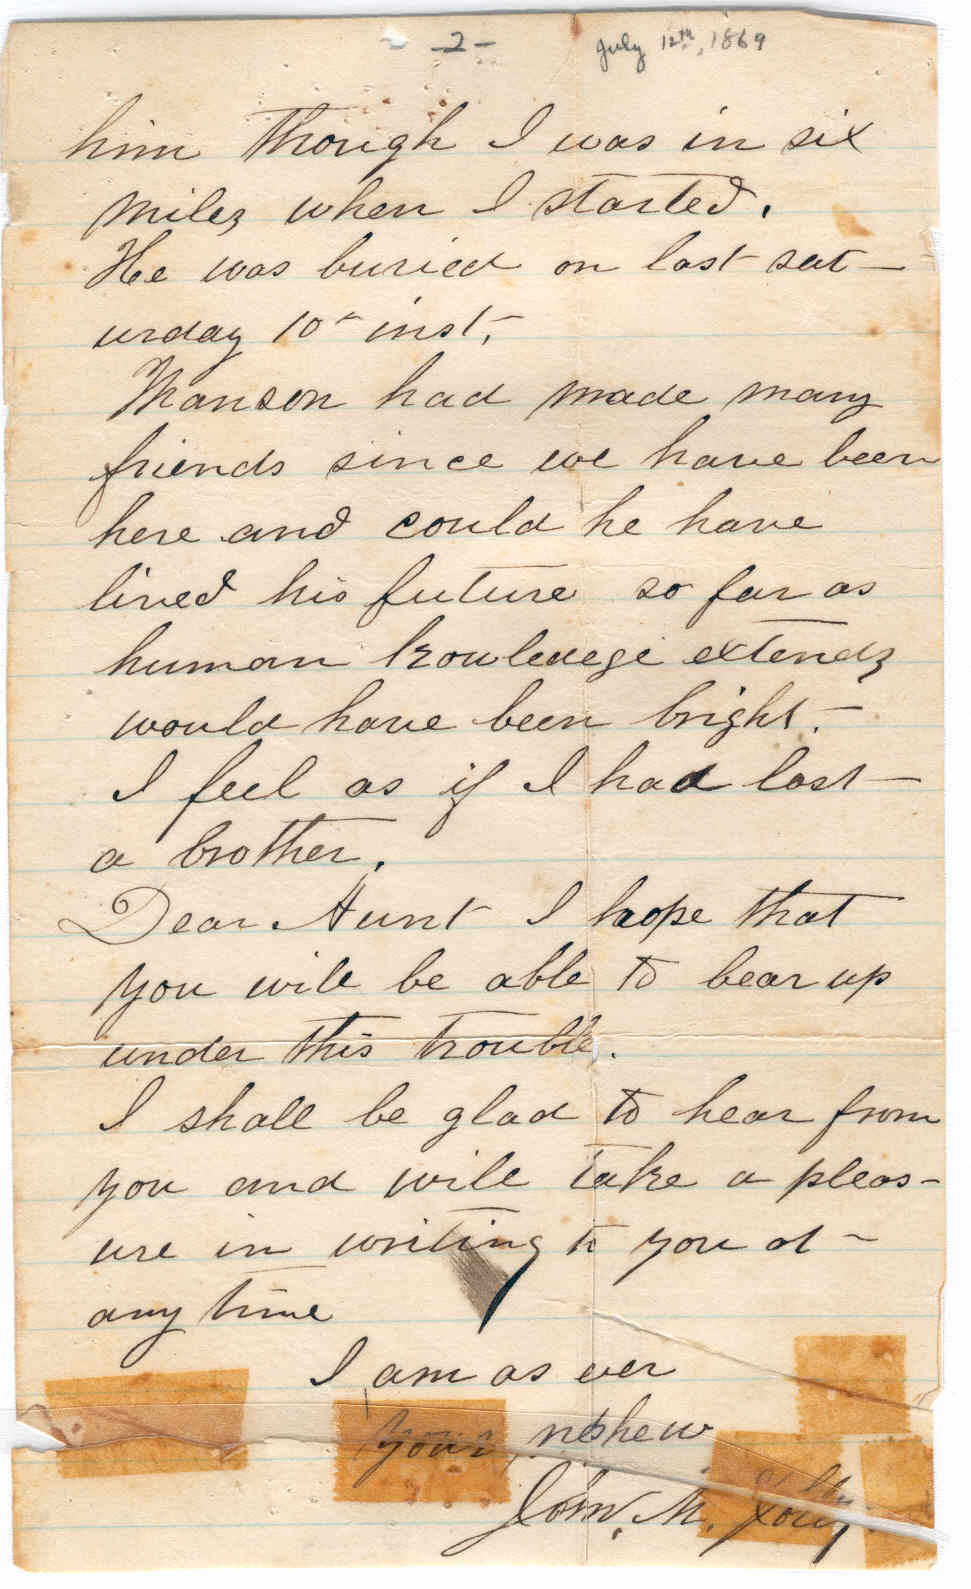 - 2 -
July 12th, 1869
him though I was in six
miles when I started.
He was buried on last sat-
urday 10th inst,
Manson had made many
friends since we have been
here and could he have
lived his future so far as
human knowledege extends
would have been bright.
I feel as if I had lost
a brother.
Dear Aunt I hope that
you will be able to bear up
under this trouble.
I shall be glad to hear from
you and will take a pleas-
ure in writing to you at
any time
I am as ever
your nephew
John. M.